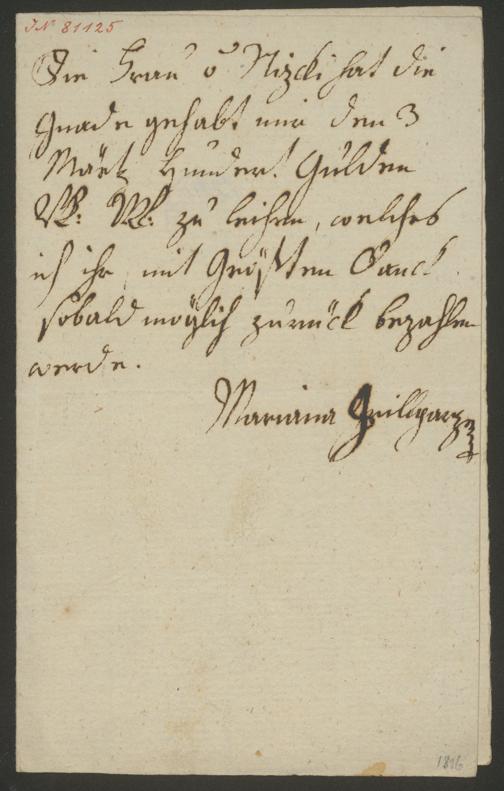 IN 81125
Die Frau v Nizcki hat die
Gnade gehabt mir den 3
Märtz Hundert Gulden
W: W: zu leihen, welches
ich ihr mit Größten Danck
sobald möglich zurück bezahlen
werde.
Mariana Grillparzer
1816